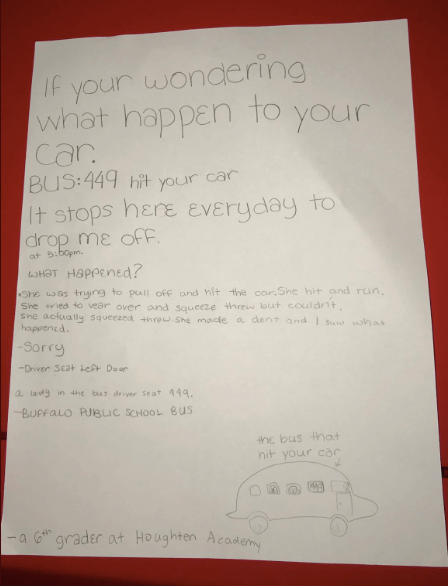 If your wondering
what happen to your
car.
BUS:449 hit your car
It stops here everyday to
drop me off.
at 5:00pm.
what Happened?
•She was trying to pull off and hit the car. She hit and run.
She tried to vear over and squeeze threw but couldn't.
She actually squeezed threw. She made a dent and I saw what
happened.
-Sorry
-Driver Seat Left Door
a lady in the bus driver seat 449.
-BUFFALO PUBLIC SCHOOL BUS
the bus that
hit your car
-a 6th grader at Houghten Academy